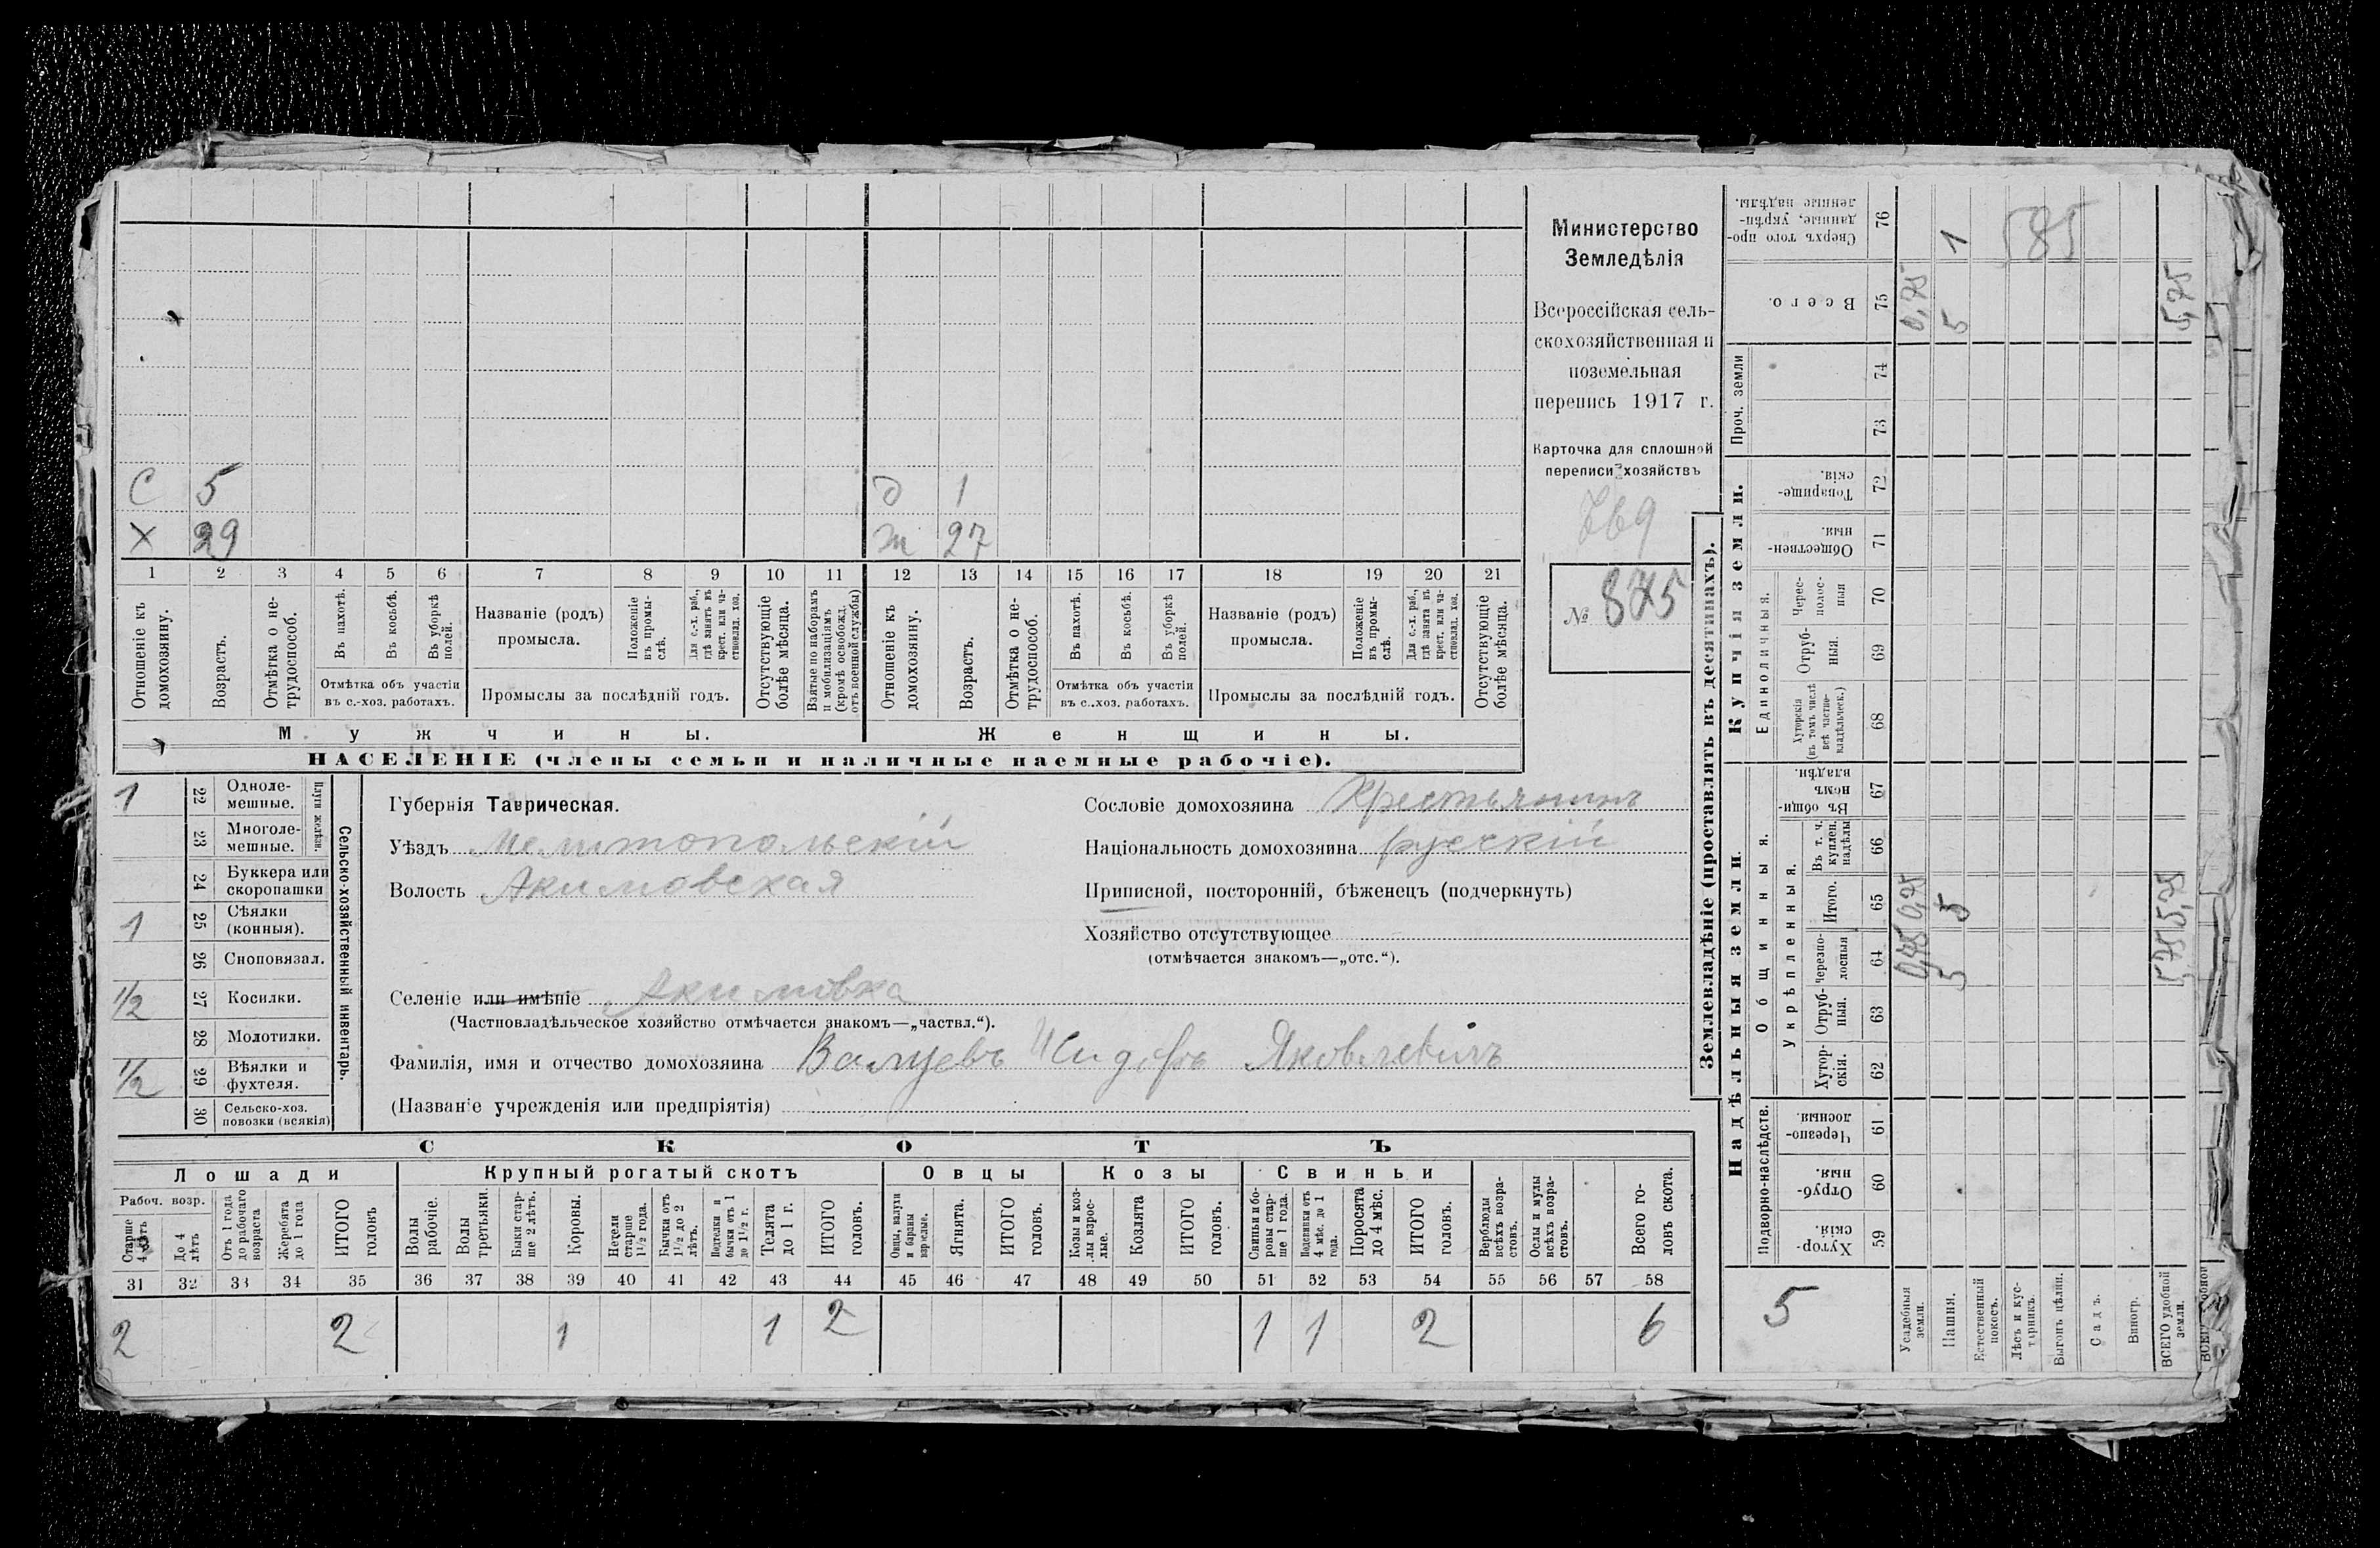 С 5 д 1
Х 29 ж 27
1 2 3 4 5 6 7 8 9 10 11 12 13 14 15 16 17 18 19 20 21
Отношеніе къ домохозяину.
Возрастъ.
Отмѣтка о не-трудоспособ.
Въ пахотѣ.
Въ косьбѣ.
Въ уборкѣ полей.
Отмѣтка объ участіи
въ с.-хоз. работахъ.
Названіе (родъ)
промысла.
Положеніе въ промы-слѣ.
Для с.-х. раб., гдѣ занятъ въ крест. или ча-стновлад. хоз.
Промыслы за послѣдній годъ.
Отсутствующіе болѣе мѣсяца.
Взятые по наборамъ и мобилизаціямъ (кромѣ освобожд. отъ военной службы)
Отношеніе къ домохозяину.
Возрастъ.
Отмѣтка о не-трудоспособ.
Въ пахотѣ.
Въ косьбѣ.
Въ уборкѣ полей.
Отмѣтка объ участіи
въ с.-хоз. работахъ.
Названіе (родъ)
промысла.
Положеніе въ промы-слѣ.
Для с.-х. раб., гдѣ занята въ крест. или ча-стновлад. хоз.
Промыслы за послѣдній годъ.
Отсутствующіе болѣе мѣсяца.
Мужчины. Женщины.
НАСЕЛЕНІЕ (члены семьи и наличные наемные рабочіе).
Министерство
Земледѣлія
Всероссійская сель-
скохозяйственная и
поземельная
перепись 1917 г.
Карточка для сплошной
переписи хозяйствъ
№ 875
Сельско-хозяйственный инвентарь.
Плуги желѣзн.
1 22 Одноле-мешные.
23 Многоле-мешные.
24 Буккера или скоропашки
1 25 Сѣялки (конныя).
26 Сноповязал.
1/2 27 Косилки.
28 Молотилки.
1/2 29 Вѣялки и фухтеля.
30 Сельско-хоз. повозки (всякія)
Губернія Таврическая.
Уѣздъ Мелитопольскій
Волость Акимовская
Сословіе домохозяина Крестьянинъ
Національность домохозяина русскій
Приписной, посторонній, бѣженецъ (подчеркнуть)
Хозяйство отсутствующее
(отмѣчается знакомъ—„отс.“).
Селеніе или имѣніе Акимовка
(Частновладѣльческое хозяйство отмѣчается знакомъ—„частвл.“).
Фамилія, имя и отчество домохозяина Исидоръ Яковлевичъ
(Названіе учрежденія или предпріятія)
СКОТЪ
Лошади Крупный рогатый скотъ Овцы Козы Свиньи
Рабоч. возр.
Старше 4 лѣтъ
До 4 лѣтъ
Отъ 1 года до рабочаго возраста
Жеребята до 1 года
ИТОГО головъ
Волы рабочіе.
Волы третьяки.
Быки стар-ше 2 лѣтъ.
Коровы.
Нетели старше 1 1/2 года.
Бычки отъ 1 1/2 до 2 лѣтъ.
Подтелки и бычки отъ 1 до 1 1/2 г.
Телята до 1 г.
ИТОГО головъ.
Овцы, валухи и бараны взрослые.
Ягнята.
ИТОГО головъ.
Козы и коз-лы взрос-лые.
Козлята
ИТОГО головъ.
Свиньи и бо-ровы стар-ше 1 года.
Подсвинки отъ 4 мѣс. до 1 года.
Поросята до 4 мѣс.
ИТОГО головъ.
Верблюды всѣхъ возра-стовъ.
Ослы и мулы всѣхъ возра-стовъ.
Всего го-ловъ скота.
31 32 33 34 35 36 37 38 39 40 41 42 43 44 45 46 47 48 49 50 51 52 53 54 55 56 57 58
2 2 1 1 2 1 1 2 6
Землевладѣніе (проставлять въ десятинахъ).
Надѣльныя земли.
Купчія земли.
Проч. земли
Подворно-наслѣдств.
Общинныя.
Укрѣпленныя.
Единоличныя.
Хутор-скія. 59
Отруб-ныя. 60
Черезпо-лосныя. 61
Хутор-скія. 62
Отруб-ныя. 63
Черезпо-лосныя 64
Итого. 65
Въ т. ч. куплен. надѣлы 66
Въ общи-номъ владѣн. 67
Хуторскія (въ томъ числѣ всѣ частно-владѣльческ.) 68
Отруб-ныя. 69
Черес-полос-ныя 70
Обществен-ныя. 71
Товарище-скія. 72
73
74
Всего. 75
Сверхъ того про-данные, укрѣп-ленные надѣлы. 76
5
Усадебныя земли. 0,75 0,75 0,75
Пашня. 5 5 5 1
Естественный покосъ.
Лѣсъ и кус-тарникъ.
Выгонъ цѣлин.
Садъ.
Виногр.
ВСЕГО удобной земли. 5,75 5,75 5,75
585